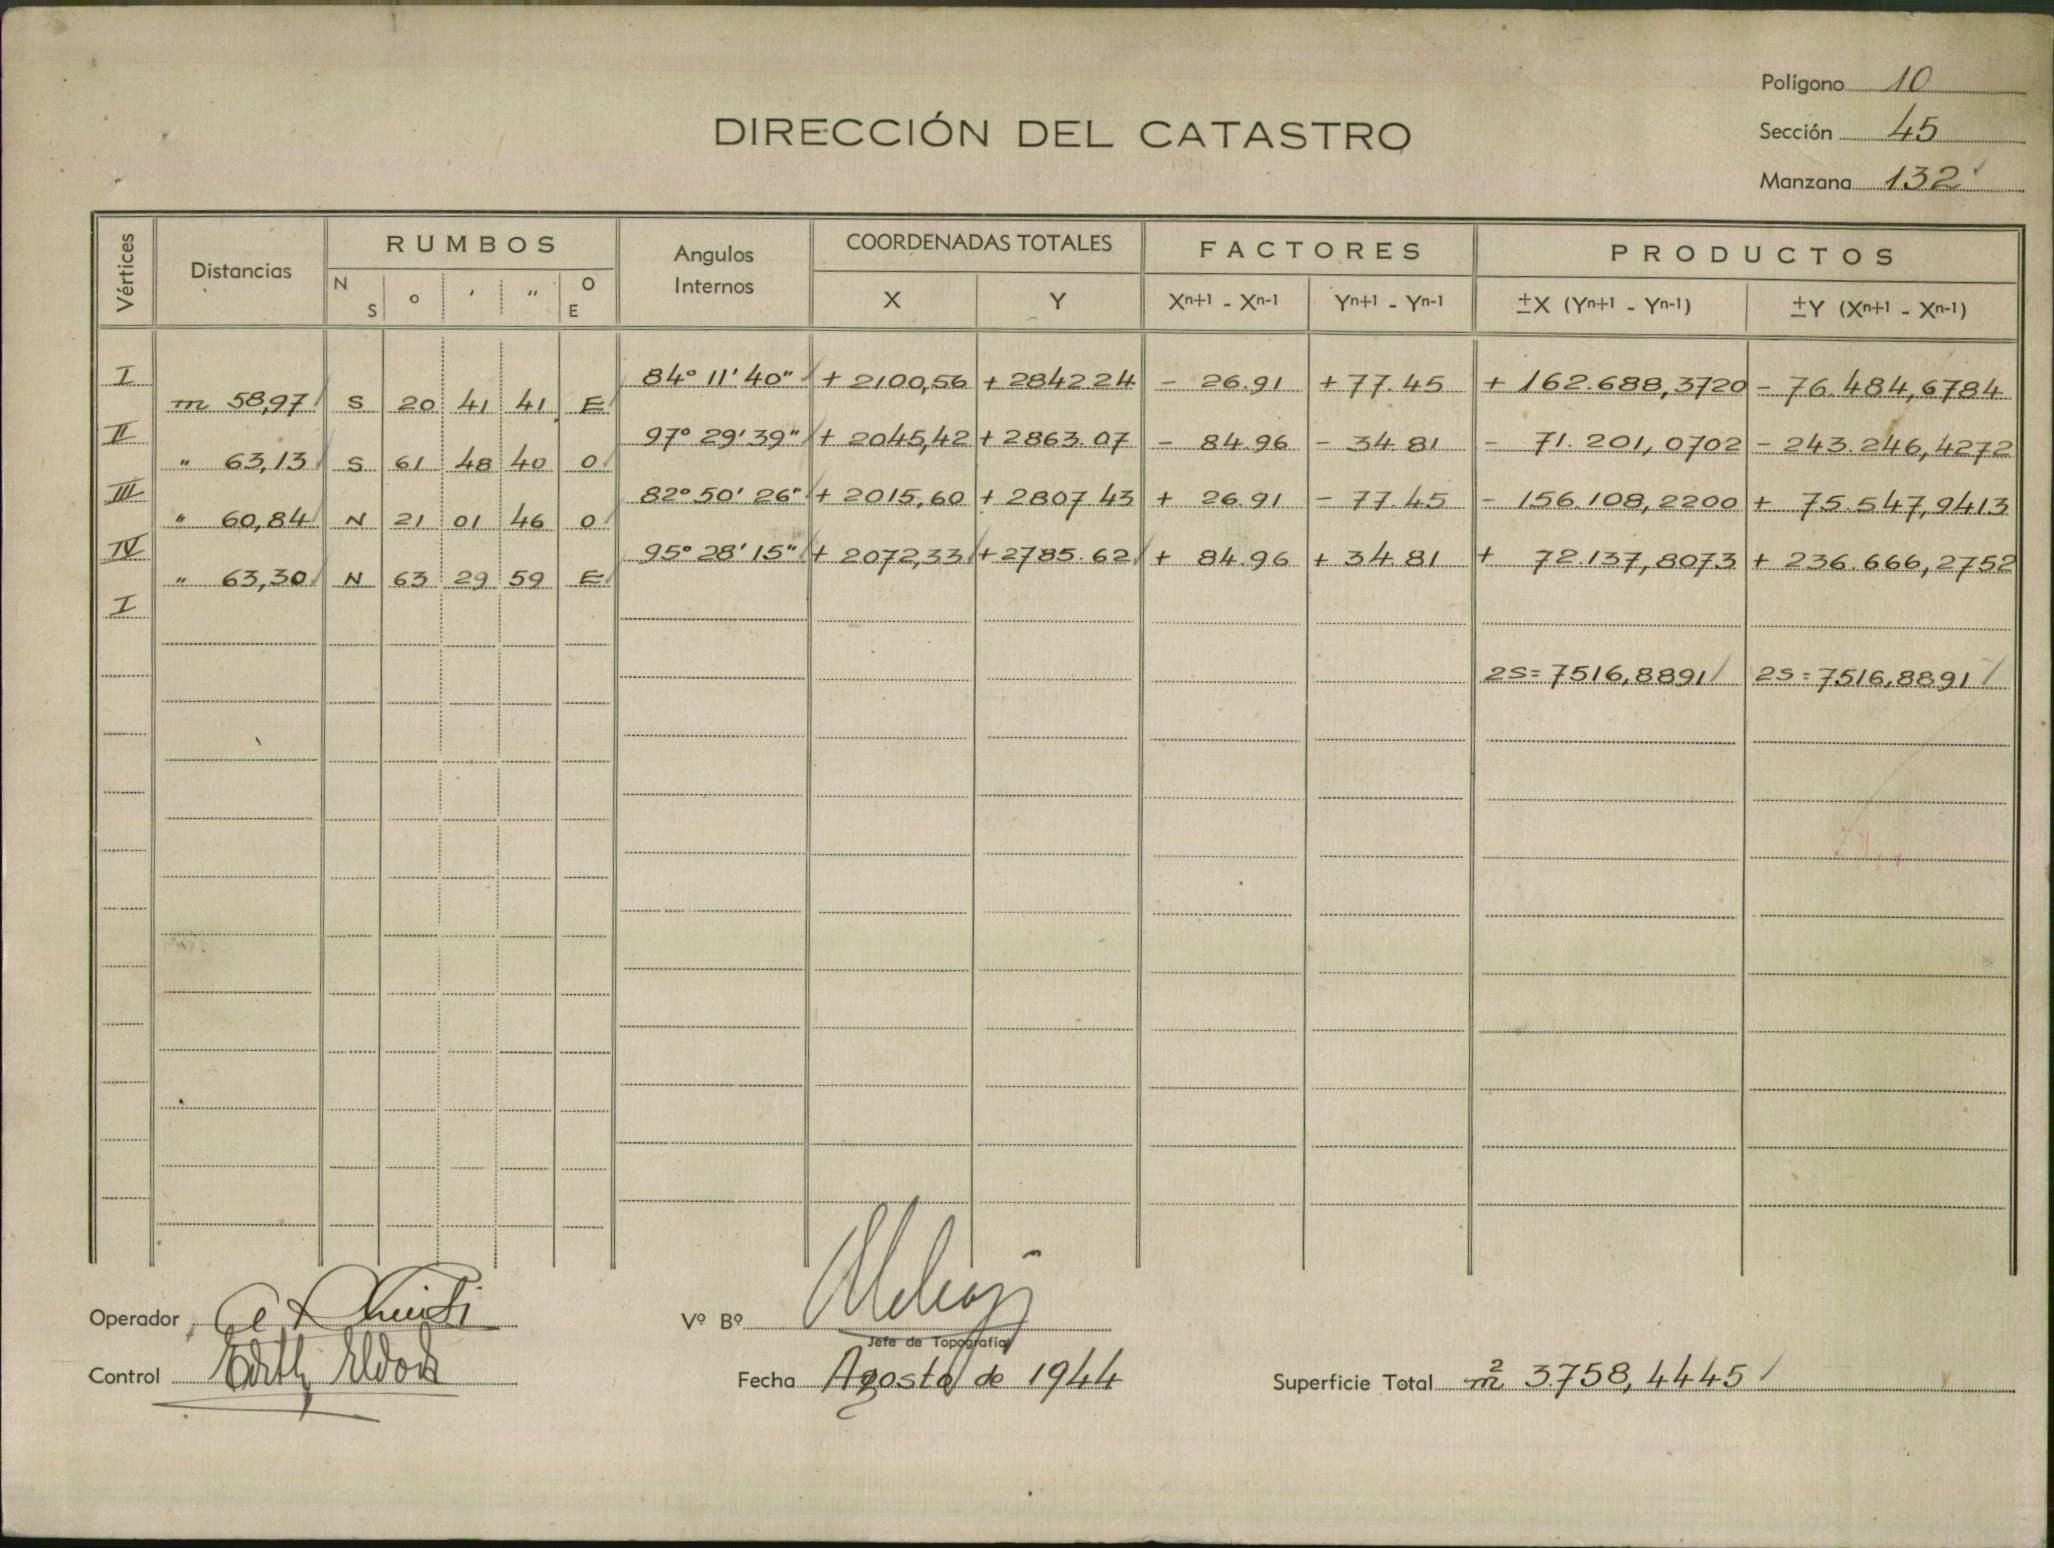 Polígono 10
DIRECCIÓN DEL CATASTRO
Sección 45
Manzana 132
Vértices
Distancias
RUMBOS
N S
o
'
"
O E
Angulos Internos
COORDENADAS TOTALES
X
Y
FACTORES
Xn+1 - Xn-1
Yn+1 - Yn-1
PRODUCTOS
±X (Yn+1 - Yn-1)
±Y (Xn+1 - Xn-1)
I 84° 11' 40" + 2100,56 + 2842 24 - 26.91 + 77.45 + 162.688,3720 - 76.484,6784
m 58,97 S 20 41 41 E
II 97° 29' 39" + 2045,42 + 2863.07 - 84.96 - 34.81 - 71.201,0702 - 243.246,4272
" 63,13 S 61 48 40 O
III 82° 50' 26" + 2015,60 + 2807.43 + 26.91 - 77.45 - 156.108,2200 + 75.547,9413
" 60,84 N 21 01 46 O
IV 95° 28' 15" + 2072,33 + 2785.62 + 84.96 + 34.81 + 72.137,8073 + 236.666,2752
" 63,30 N 63 29 59 E
I
2S = 7516,8891 2S = 7516,8891
Operador
Vº Bº
Jefe de Topografía
Control Edith
Fecha Agosto de 1944
Superficie Total m² 3.758,4445